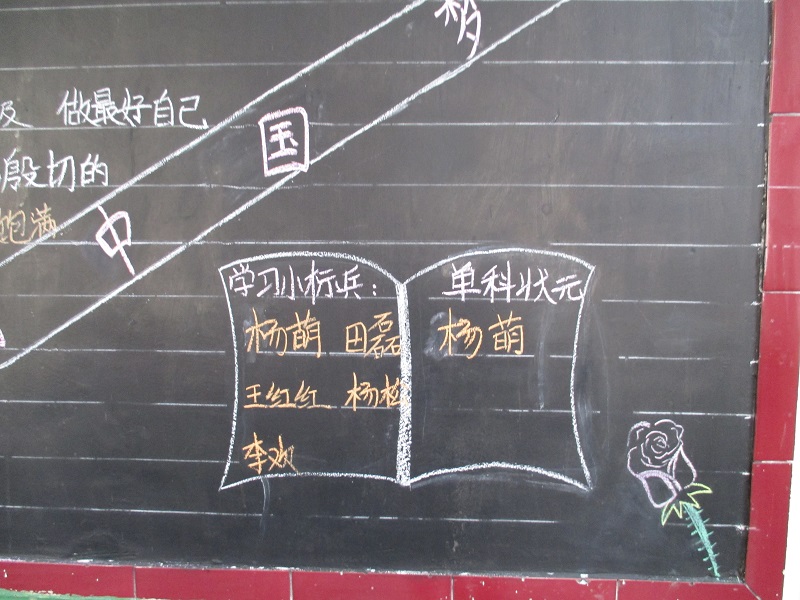 做最好自己
殷切的
饱满
中国梦
学习小标兵：
杨萌 田磊
王红红 杨松
李欢
单科状元
杨萌